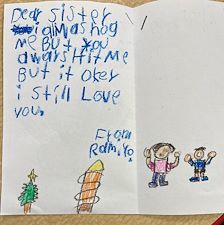 Dear Sister
ialmashog
me But you
awars Hit Me
But it oker
i still Love
you.
From
Ramiyo